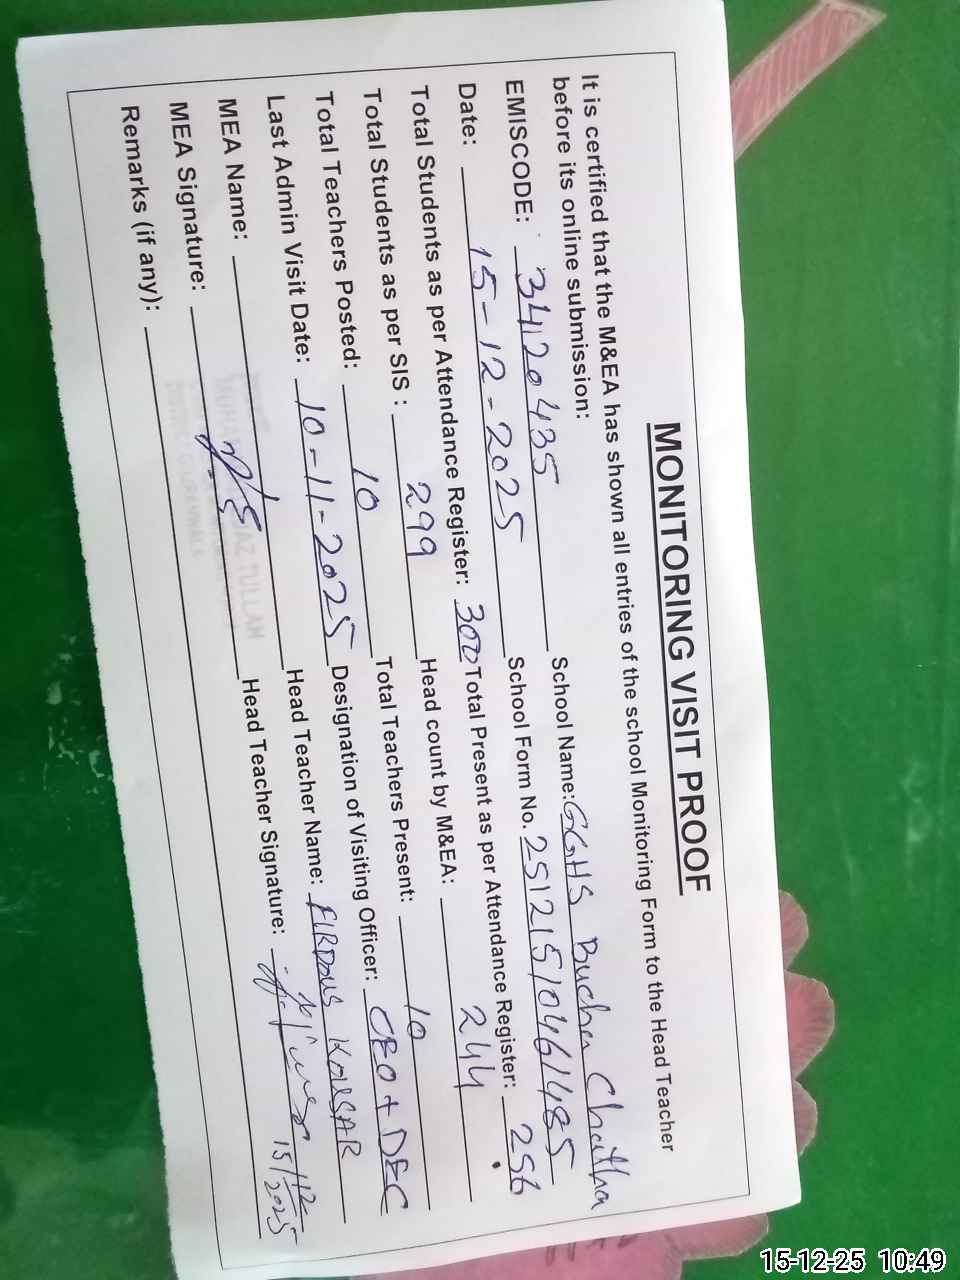 MONITORING VISIT PROOF
It is certified that the M&EA has shown all entries of the school Monitoring Form to the Head Teacher
before its online submission:
EMISCODE: 34120435 School Name: GGHS Bucha Chattha
Date: 15-12-2025 School Form No. 25121510461485
Total Students as per Attendance Register: 300 Total Present as per Attendance Register: 256
Total Students as per SIS : 299 Head count by M&EA: 244
Total Teachers Posted: 10 Total Teachers Present: 10
Last Admin Visit Date: 10-11-2025 Designation of Visiting Officer: CEO + DEC
MEA Name: Head Teacher Name: FIRDOUS KOUSAR
MEA Signature: Head Teacher Signature: 15/12/2025
Remarks (if any):
15-12-25 10:49